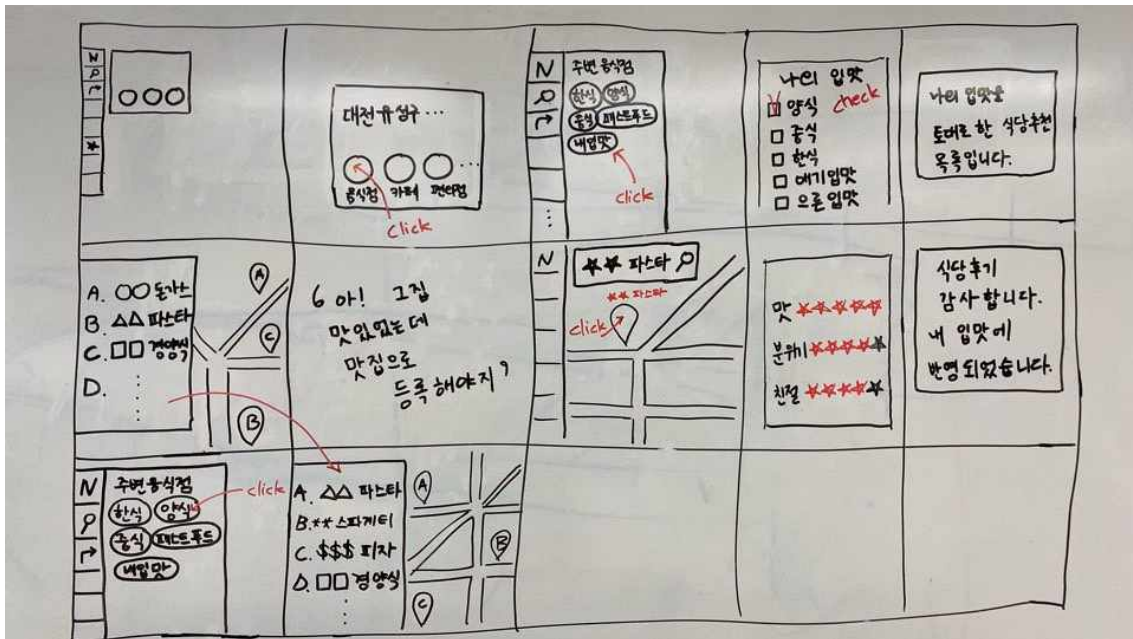 N
대전 유성구 ...
음식점 카페 편의점
click
N
주변 음식점
한식 양식
중식 패스트푸드
내입맛
click
나의 입맛
양식 check
중식
한식
애기입맛
으른입맛
나의 입맛을
토대로 한 식당추천
목록입니다.
A. ○○ 돈가스
B. △△ 파스타
C. □□ 경양식
D.
A
C
B
6 아! 그집
맛있었는데
맛집으로
등록해야지 ’
N
★★ 파스타
★★ 파스타
click
맛 ★★★★★
분위기 ★★★★★
친절 ★★★★★
식당후기
감사합니다.
내 입맛에
반영되었습니다.
N
주변음식점
한식 양식 click
중식 패스트푸드
내입맛
A. △△ 파스타
B. ** 스파게티
C. $$$ 피자
D. □□ 경양식
A
B
C